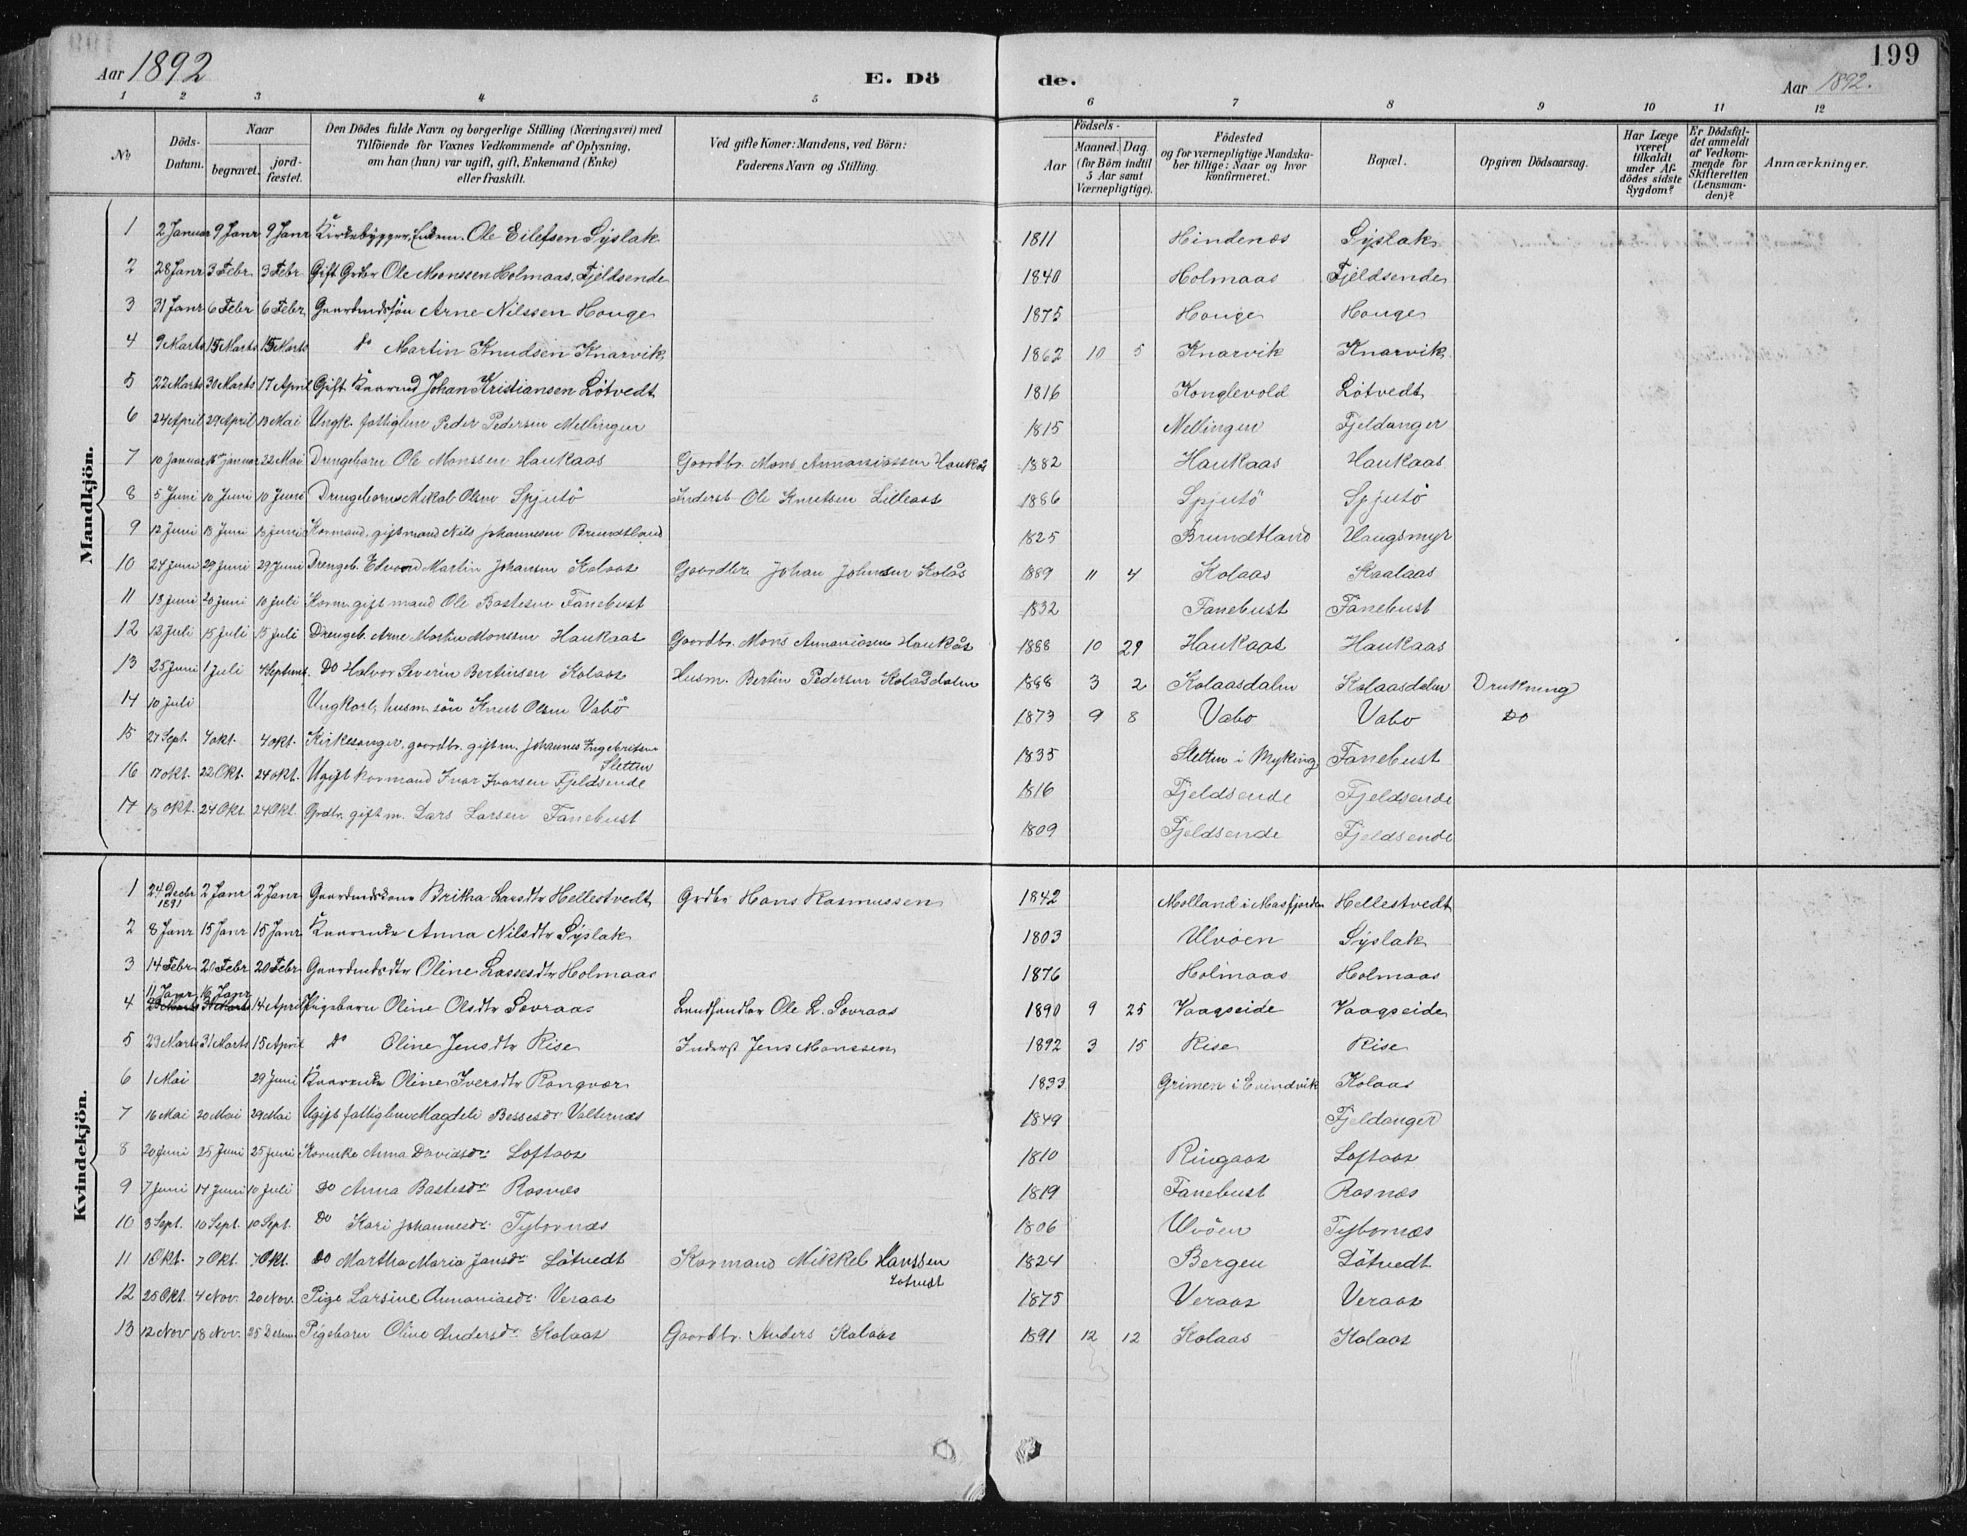 199
Aar 1892 E. Dö de. Aar 1892.
1 2 3 4 5 6 7 8 9 10 11 12
No Döds-Datum. Naar begravet. jord-fæstet. Den Dödes fulde Navn og borgerlige Stilling (Næringsvei) med Tilföiende for Voxnes Vedkommende af Oplysning, om han (hun) var ugift, gift, Enkemand (Enke) eller fraskilt. Ved gifte Koner: Mandens, ved Börn: Faderens Navn og Stilling. Födsels- Aar Maaned. Dag (for Börn indtil 5 Aar samt Værnepligtige). Födested og for værnepligtige Mandska-ber tillige: Naar og hvor konfirmeret. Bopæl. Opgiven Dödsaarsag. Har Læge været tilkaldt under Af-dödes sidste Sygdom? Er Dödsfal-det anmeldt af Vedkom-mende for Skifteretten (Lensman-den)? Anmærkninger.
Mandkjön.
1 2 Januar 9 Janr 9 Janr Kirkebygger, Enkem. Ole Eilefsen Syslak 1811 Hindenæs Syslak
2 28 Janr 3 Febr. 3 Febr Gift Grdbr Ole Monssen Holmaas, Fjeldsende 1840 Holmaas Fjeldsende
3 31 Janr 6 Febr 6 Febr Gaardmdssön Arne Nilssen Houge 1875 Houge Houge
4 9 Marts 15 Marts 15 Marts do Martin Knudsen Knarvik 1862 10 5 Knarvik Knarvik
5 22 Marts 30 Marts 17 April Gift Kaarmd Johan Kristiansen Lötvedt 1816 Konglevold Lötvedt
6 24 April 29 April 13 Mai Ungk. fattiglem Peder Pedersen Mellingen 1815 Mellingen Fjeldanger
7 10 Januar 16 januar 22 Mai Drengebarn Ole Monssen Haukaas Gaardbr. Mons Annaniassen Haukås 1882 Haukaas Haukaas
8 5 Juni 10 Juni 10 Juni Drengebarn Mikal Olsen Spjutö Inderst Ole Knutsen Lilleaas 1886 Spjutö Spjutö
9 12 Juni 18 Juni 18 juni Kormand, gift mand Nils Johannesen Brundtland 1825 Brundtland Haugsmyr
10 24 juni 29 juni 29 Juni Drengeb. Edvard Martin Johansen Kolaas Gaardbr. Johan Johnsen Kolås 1889 11 4 Kolaas Kaalaas
11 13 juni 20 Juni 10 juli Korm. gift mand Ole Bastesen Fanebust 1832 Fanebust Fanebust
12 12 Juli 15 Juli 15 juli Drengeb. Arne Martin Monssen Haukaas Gaardbr. Mons Annaniasen Haukås 1888 10 29 Haukaas Haukaas
13 25 Juni 1 Juli 4 Septemb. Do Halvor Severin Bertinsen Kolaas Husm. Bertin Pedersen Kolåsdalen 1888 3 2 Kolaasdalen Kolaasdalen Drukning
14 10 juli Ungkarl, husm. sön Knut Olsen Vabö 1873 9 8 Vabo Vabo Do
15 27 Sept. 4 okt. 4 okt. Kirkesanger, gaardbr. gift m. Johannes Ingebritsen Sletten 1835 Sletten i Myking Fanebust
16 17 okt. 22 Okt. 24 okt. Ugift kormand Ivar Ivarsen Fjeldsende 1816 Fjeldsende Fjeldsende
17 18 okt. 24 Okt. 24 Okt. Grdbr. gift m. Lars Larsen Fanebust 1809 Fjeldsende Fjeldsende
Kvindekjön.
1 24 Decbr 1891 2 Janr 2 Janr Gaardmdskone Britha Larsdtr Hellestvedt Grdbr Hans Rasmussen 1842 Molland i Masfjorden Hellestvedt
2 8 Janr 15 Janr 15 Janr Kaarenke Anna Nilsdtr Syslak 1803 Ulvöen Syslak
3 14 Febr 20 Febr 20 Febr Gaardmdsdtr Oline Lassesdtr Holmaas 1876 Holmaas Holmaas
11 Janr 16 Janr
4 14 April Pigebarn Oline Olsdtr Sovraas Landhandler Ole L. Sovraas 1890 9 25 Vaagseide Vaagseide
5 23 Marts 31 Marts 15 April Do Oline Jensdtr Rise Inderst Jens Monssen 1892 3 15 Rise Rise
6 1 Mai 29 Juni Kaarenke Oline Iversdtr Rongvær 1833 Grimen i Evindvik Kolaas
7 16 Mai 20 Mai 29 Mai Ugift fattiglem Magdeli Bessesdr Valternæs 1849 Fjeldanger
8 20 juni 25 Juni 25 juni Korenke Anna Davidsdr. Loftaas 1810 Ringaas Loftaas
9 7 juni 14 Juni 10 Juli Do Anna Bastesdr Rosnæs 1819 Fanebust Rosnæs
10 3 Sept. 10 Sept. 10 Sept. Do Kari Johannesdr. Tybornæs 1806 Ulvöen Tybornæs
11 1 Okt. 7 Okt. 7 Okt. Do Martha Maria Jansdr Lötvedt Kormand Mikkel Hanssen Lötvedt 1824 Bergen Lötvedt
12 25 Okt. 4 Nov. 20 Nov. Pige Larsine Annaniasdr. Veraas 1875 Veraas Veraas
13 12 Nov 18 Nov. 25 Desem. Pigebarn Oline Andersdr. Kolaas Gaardbr. Anders Kolaas 1891 12 12 Kolaas Kolaas